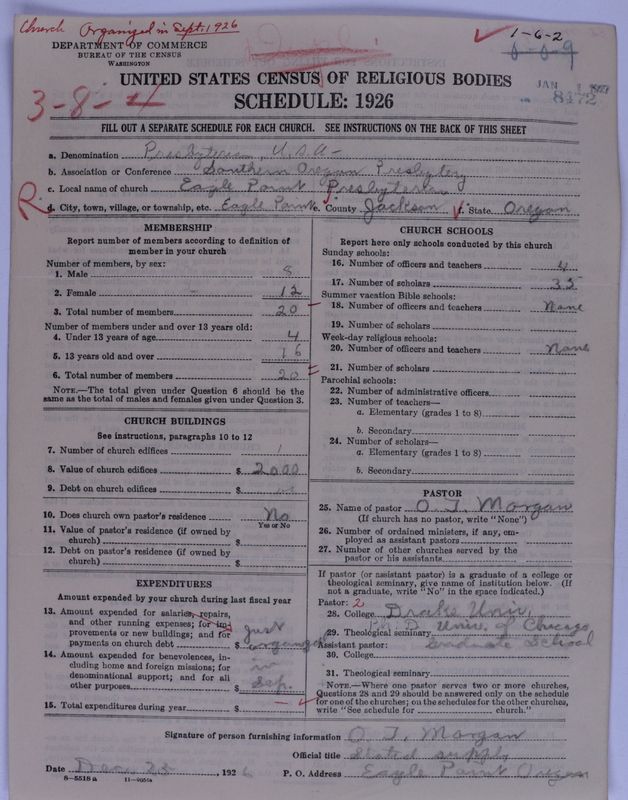 Church Organized in Sept. 1926
1-6-2
DEPARTMENT OF COMMERCE
BUREAU OF THE CENSUS
WASHINGTON
UNITED STATES CENSUS OF RELIGIOUS BODIES
SCHEDULE: 1926
3-8-4
JAN
8472
FILL OUT A SEPARATE SCHEDULE FOR EACH CHURCH. SEE INSTRUCTIONS ON THE BACK OF THIS SHEET
a. Denomination Presbyterian, U.S.A-
b. Association or Conference Southern Oregon Presbytery
c. Local name of church Eagle Point Presbyterian
R
d. City, town, village, or township, etc. Eagle Point e. County Jackson f. State Oregon
MEMBERSHIP
Report number of members according to definition of
member in your church
Number of members, by sex:
1. Male 8
2. Female 12
3. Total number of members 20
Number of members under and over 13 years old:
4. Under 13 years of age 4
5. 13 years old and over 16
6. Total number of members 20
NOTE.—The total given under Question 6 should be the
same as the total of males and females given under Question 3.
CHURCH BUILDINGS
See instructions, paragraphs 10 to 12
7. Number of church edifices 1
8. Value of church edifices $ 2000
9. Debt on church edifices $
10. Does church own pastor's residence No
Yes or No
11. Value of pastor's residence (if owned by
church) $
12. Debt on pastor's residence (if owned by
church) $
EXPENDITURES
Amount expended by your church during last fiscal year
13. Amount expended for salaries, repairs,
and other running expenses; for im-
provements or new buildings; and for
payments on church debt $ Just organized
14. Amount expended for benevolences, in-
cluding home and foreign missions; for
denominational support; and for all
other purposes $ in Sep.
15. Total expenditures during year $
CHURCH SCHOOLS
Report here only schools conducted by this church
Sunday schools:
16. Number of officers and teachers 4
17. Number of scholars 35
Summer vacation Bible schools:
18. Number of officers and teachers None
19. Number of scholars
Week-day religious schools:
20. Number of officers and teachers None
21. Number of scholars
Parochial schools:
22. Number of administrative officers
23. Number of teachers—
a. Elementary (grades 1 to 8)
b. Secondary
24. Number of scholars—
a. Elementary (grades 1 to 8)
b. Secondary
PASTOR
25. Name of pastor O. J. Morgan
(If church has no pastor, write "None")
26. Number of ordained ministers, if any, em-
ployed as assistant pastors
27. Number of other churches served by the
pastor or his assistants
If pastor (or assistant pastor) is a graduate of a college or
theological seminary, give name of institution below. (If
not a graduate, write "No" in the space indicated.)
Pastor: 2
28. College Drake Univ.
29. Theological seminary Ph. D. Univ. of Chicago
Assistant pastor: Graduate School
30. College
31. Theological seminary
NOTE.—Where one pastor serves two or more churches,
Questions 28 and 29 should be answered only on the schedule
for one of the churches; on the schedules for the other churches,
write "See schedule for church."
Signature of person furnishing information O. J. Morgan
Official title Stated supply
Date Dec. 28, 1926 P. O. Address Eagle Point Oregon
8—5518 a